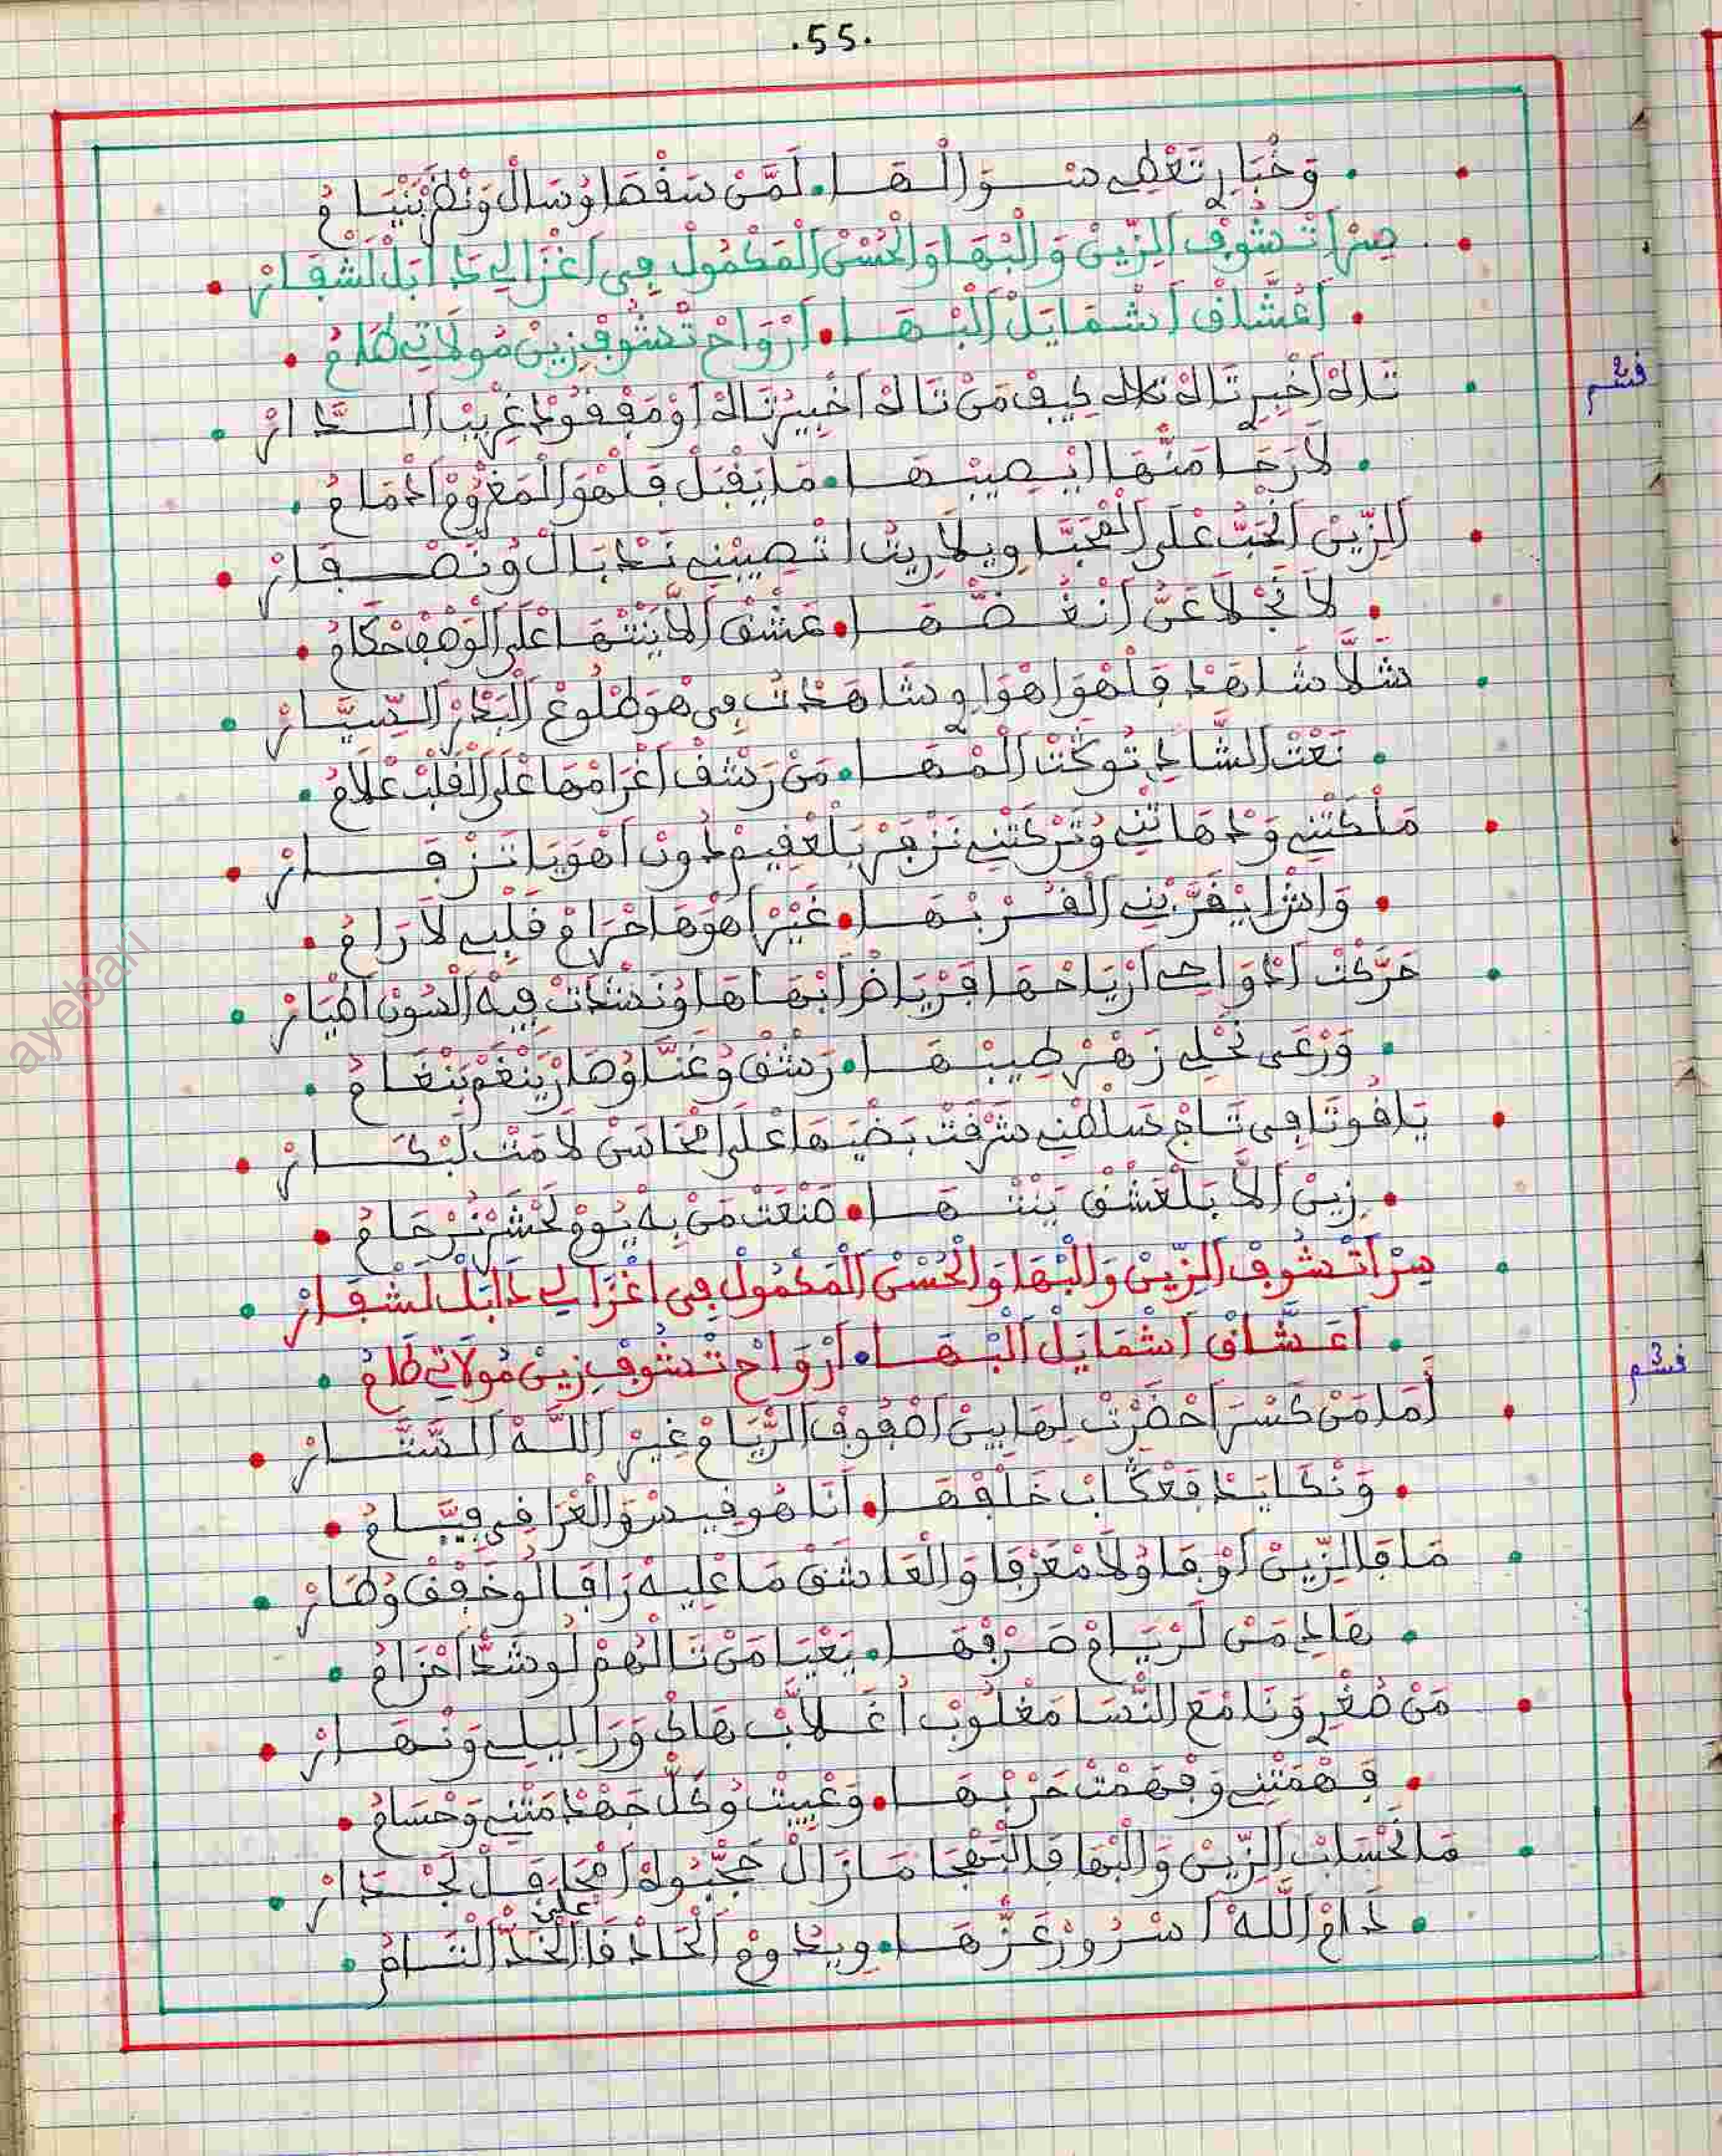 .55.
وَخْبَارِ تَعْطِي سْوَالْهَا. لَمَّنْ سَقْصَا وُسَالْ وَنْظَرْ بَنْيَامْ
سِرْ اَتْشُوفْ اَلزِّينْ وَالْبْهَا وَالْحُسْنْ اَلْمَكْمُولْ فِي اَغْزَالِي دَابَلْ لَشْفَارْ
اَعُشَّاقْ اَشْمَايَلْ اَلْبْهَا. اَرْوَاحْ تْشُوفْ زِينْ مُولَاتِي طَامُ
قسم 2
تَاكْ اَخْبِرْ تَاكْ تَاكْ كِيفْ مَنْ تَاكْ اَخْبِيرْ تَاكْ اَوْ مَفْقُودْ غْرِيبْ اَلدَّارْ
لَا رَجَا مَنْهَا اِيْصِيبْهَا. مَا يَقْبَلْ قَلْهْوَ الْمَغْرُومْ
اَلزِّينْ اَلْحَبْ عْلَى اَلْمْحَبَّا وِيلَا رِيتْ اتْصِيبْنِي نَدْبَالْ وُنَصْفَارْ
لَا تَجْلَا عَنِّ اَنْغُصّْهَا. عَشْقْ اَلَّا يَنْتْهَا عْلَى اَلْوَصْفْ حْكَامْ
شَلَّا شَاهَدْ قَلْهْوَ اهْوَا وِشَاهَدْتْ فِي هْوَ طْلُوعْ اَلْبَدْرْ اَلسِّيَّارْ
نَعْتْ اَلشَّادِ تُوكَّتْ اَلْمْهَا. مَنْ رَشْقْ اَغْرَامْهَا عْلَى اَلْقَلْبْ عْلَامْ
مَلْكَتْنِي وَدْهَاتْنِي وُتَرْكَتْنِي نَزْفَرْ بَلْغْفِيمْ دُونْ اَهْوَيَا تَزْفَارْ
وَاشْ يْقَرَّبْنِي اَلْقُرْبْهَا. غَيْرْ اَهْوَاهَا حْرَامْ قَلْبِي لَا رَامْ
حَرّْكَتْ اَدْوَاحِي اَرْيَاحْهَا فَرْيَاضْ اَبْهَاهَا وُنَشْدَتْ فِيهْ اَلْسُونْ اَطْيَارْ
وَرْعَى نَحْلِي زَهْرْ طِيبْهَا. رَشْقْ وُغَنَّا وُصَارْ يَنْغَمْ بَنْغَامْ
يَاقُوتَا فِي تَاجْ سَلْطْنِي شَرْقَتْ بَضْيَهَا عْلَى اَمْحَاسْنْ لَامَتْ لَبْكَارْ
زِينْ اَلَّا بَلْعَشْقْ يَنْتْهَا. صَنْعَتْ مَنْ بِهْ يُومْ لَحْشَرْ نَرْحَامْ
سِرْ اَتْشُوفْ اَلزِّينْ وَالْبْهَا وَالْحُسْنْ اَلْمَكْمُولْ فِي اَغْزَالِي دَابَلْ لَشْفَارْ
اَعُشَّاقْ اَشْمَايَلْ اَلْبْهَا. اَرْوَاحْ تْشُوفْ زِينْ مُولَاتِي طَامُ
قسم 3
أَمَا مَنْ كَسْرَ اَحْضَرْتْ لِهَا بِينْ اَصْفُوفْ اَلرِّيَامْ غِيرْ اَللَّهْ اَلسَّتَّارْ
وَنْكَايَدْ فَعْكَابْ خَلْقْهَا. اَنَا هُو قِيسْ وَالْغْرَا فِيَ قِيَّامْ
مَا فَالزِّينْ اَوْفَا وُلَا مْعَرْفَا وَالْعَاشَقْ مَا عْلِيهْ رَاقَا لُو خَفْقْ وُطَارْ
هَادِ مَنْ لَرْيَامْ صَرْفْهَا. يَعْيَا مَنْ نَالْهُمْ لُو شَدّْ اَحْزَامْ
مَنْ صُغْرِي وَنَا مْعَ النّْسَا مَغْلُوبْ اُغَلَّابْ هَاكْ وَرَا لِيلِي وَنْهَارْ
فَهْمَتْنِي وَفْهَمْتْ حَرْبْهَا. وَعْيِيتْ وُكَلّْ جَهْدْ مَتْنِي وَحْسَامْ
مَا نَحْسَابْ اَلزِّينْ وَالْبْهَا فَالْبَهْجَا مَازَالْ حَجّْبُوهْ اَمْحَافَلْ لَجْدَارْ
دَامْ اَللَّهْ اَسْرُورْ عَزّْهَا. وِيدُومْ عْلِيَ اَلْحَادْقَا اَلْخَدّْ اَلشَّامْ
ayebari